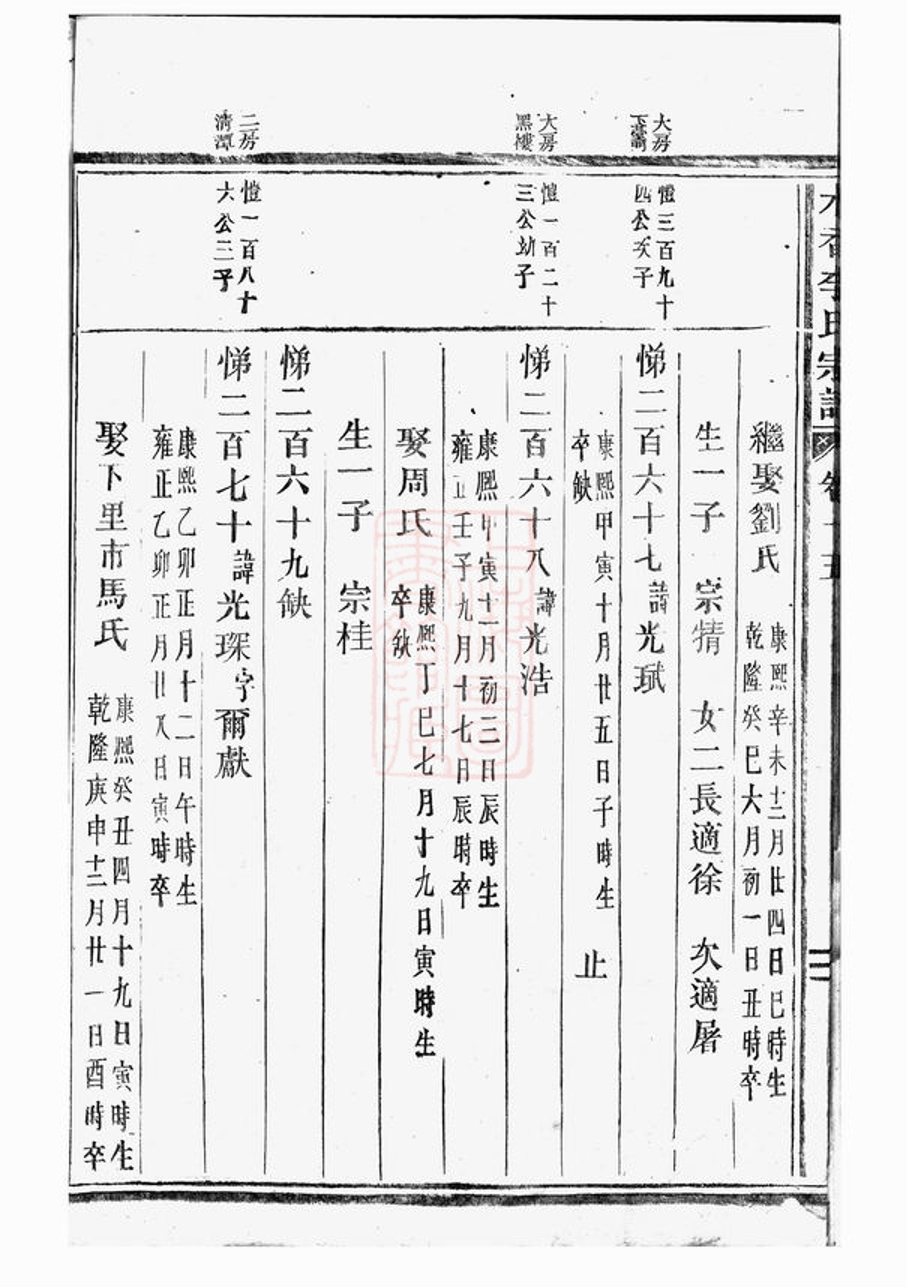 李氏宗譜 卷十五
繼娶劉氏
康熙辛未十二月廿四日巳時生
乾隆癸巳六月初一日丑時卒
生一子 宗㹵 女二長適徐 次適屠
大房
愷三百九十
四公次子
悌二百六十七諱光珷
康熙甲寅十月廿五日子時生 止
卒缺
大房
黑樓
愷一百二十
三公幼子
悌二百六十八諱光浩
康熙甲寅十一月初三日辰時生
雍正壬子九月十七日辰時卒
娶周氏
康熙丁巳七月十九日寅時生
卒缺
生一子 宗桂
悌二百六十九缺
二房
清潭
愷一百八十
六公三子
悌二百七十諱光琛字爾獻
康熙乙卯正月十二日午時生
雍正乙卯正月廿八日寅時卒
娶下里市馬氏
康熙癸丑四月十九日寅時生
乾隆庚申十二月廿一日酉時卒